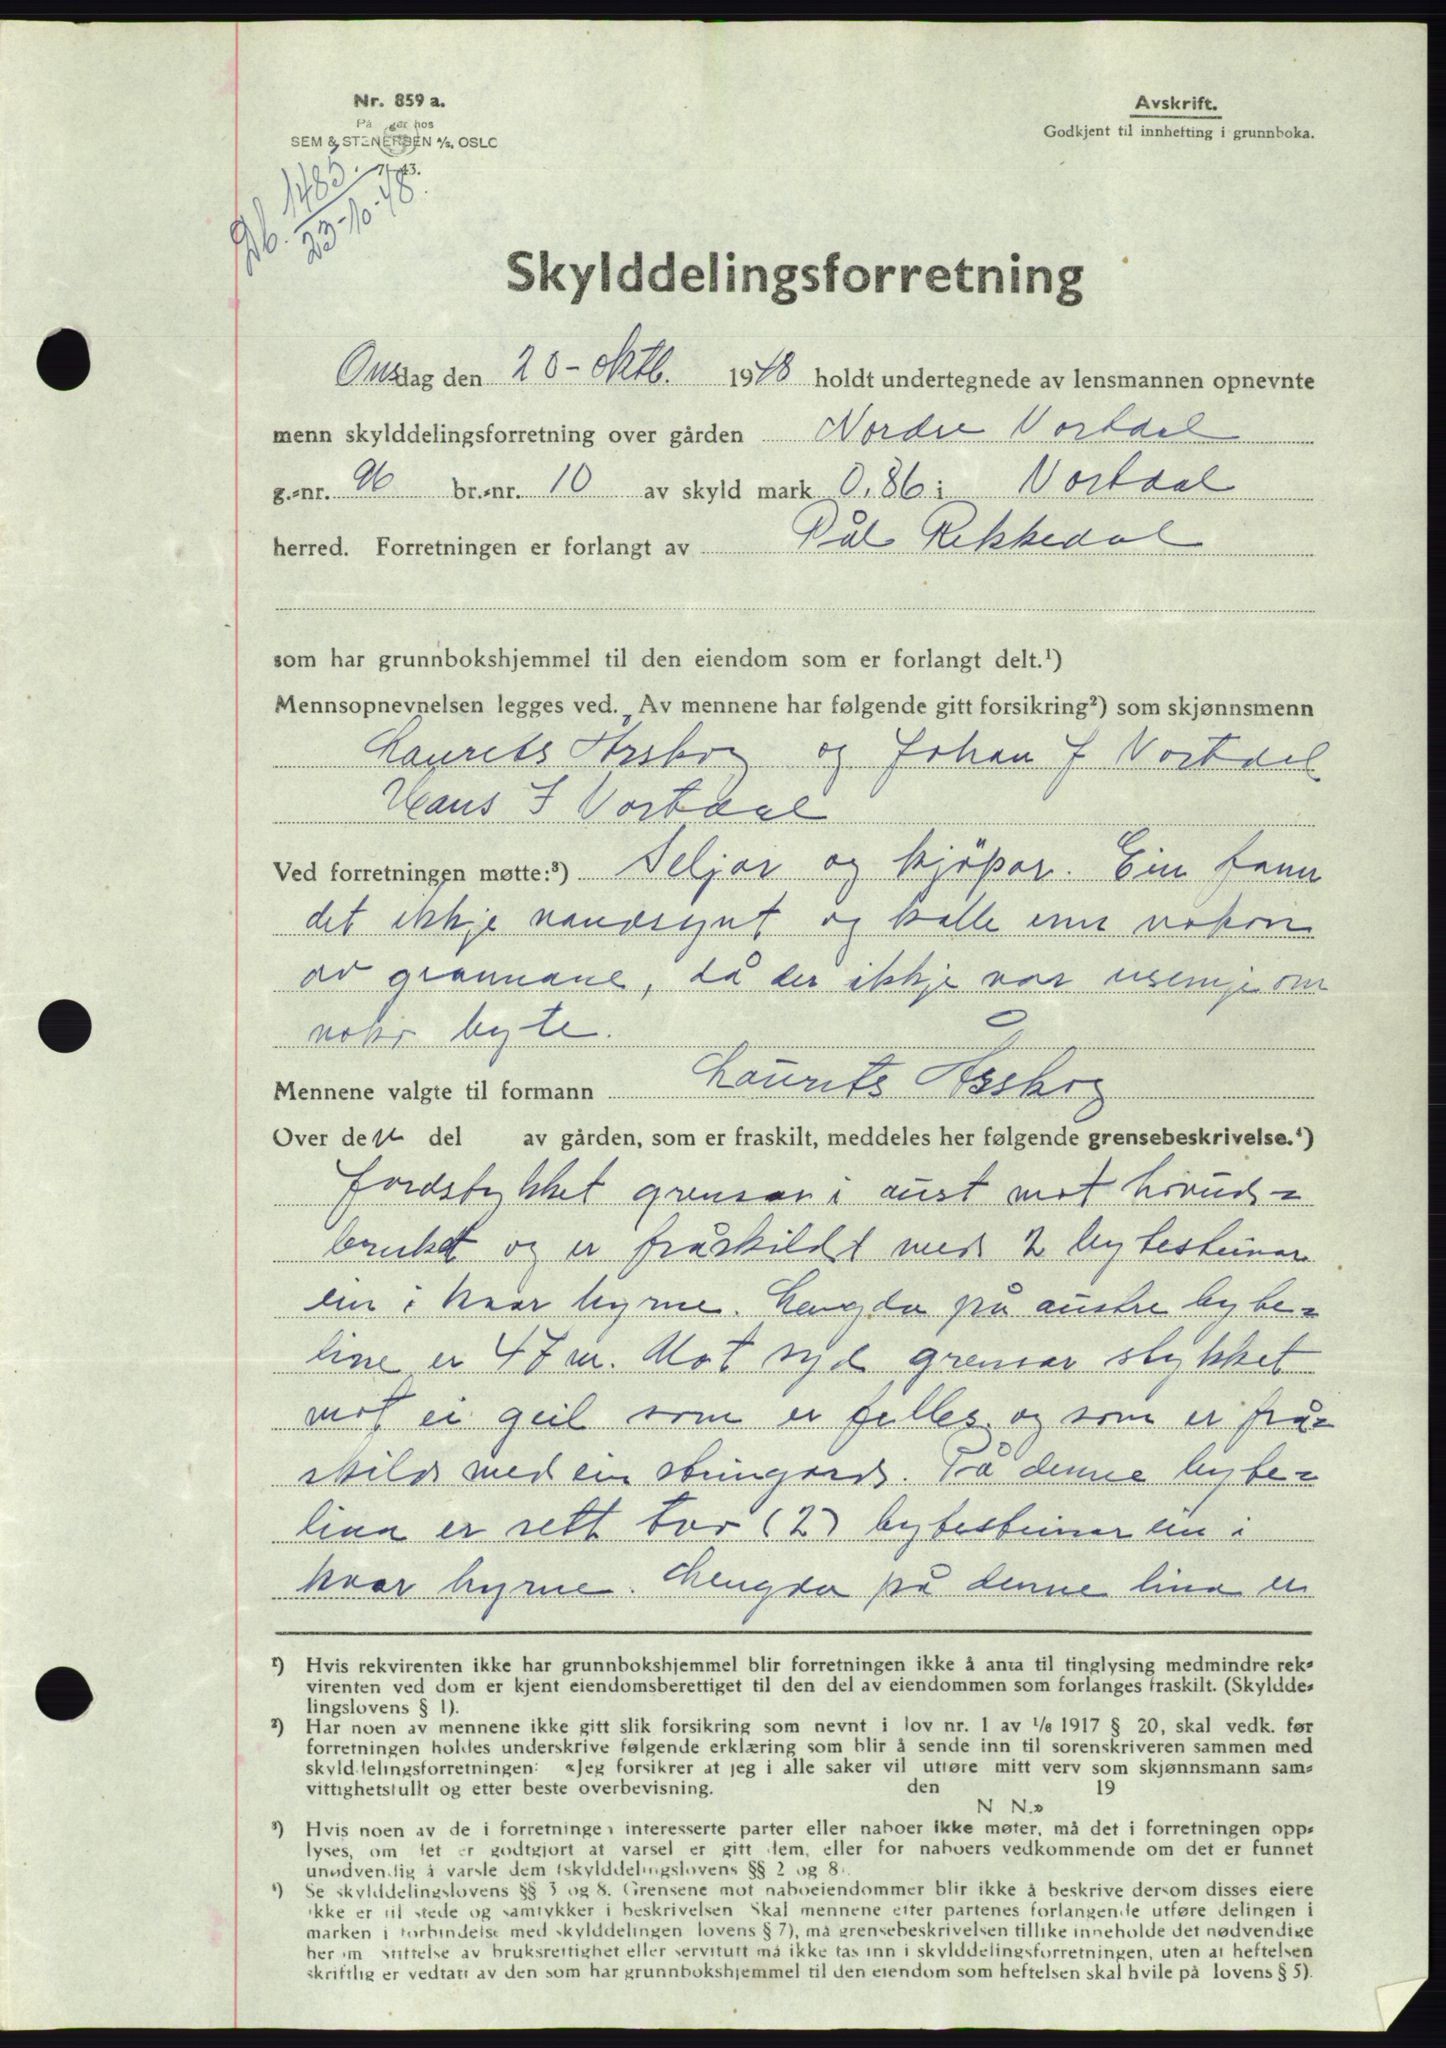 Nr. 859 a.
På      ger hos
SEM & STENERSEN A/S, OSLO
7-43.
Db. 1485.
23-10-48.
Avskrift.
Godkjent til innhefting i grunnboka.
Skylddelingsforretning
Onsdag den 20-oktb. 1948 holdt undertegnede av lensmannen opnevnte
menn skylddelingsforretning over gården Nordre Vartdal
g.-nr. 96 br.-nr. 10 av skyld mark 0,86 i Vartdal
herred. Forretningen er forlangt av Pål Rekkedal
som har grunnbokshjemmel til den eiendom som er forlangt delt.¹)
Mennsopnevnelsen legges ved. Av mennene har følgende gitt forsikring²) som skjønnsmenn
Laurits Årskog og Johan J Vartdal
Hans J Vartdal
Ved forretningen møtte:³) Seljar og kjöpar. Ein fann
det ikkje naudsynt og kalle inn nokon
av grannane, då der ikkje var usemje om
nokr byte.
Mennene valgte til formann Laurits Årskog
Over den del av gården, som er fraskilt, meddeles her følgende grensebeskrivelse.⁴)
Jordstykket grensar i aust mot hovuds=
bruket og er fråskildt med 2 bytesteinar
ein i kvar hyrne. Lengda på austre byte=
line er 47 m. Mot syd grensar stykket
mot ei geil som er felles og som er frå=
skild med ein steingard. På denne byte=
lina er sett tvo (2) bytesteinar ein i
kvar hyrne. Lengda på denne lina er
¹) Hvis rekvirenten ikke har grunnbokshjemmel blir forretningen ikke å anta til tinglysing medmindre rek-
virenten ved dom er kjent eiendomsberettiget til den del av eiendommen som forlanges fraskilt. (Skyldde-
lingslovens § 1).
²) Har noen av mennene ikke gitt slik forsikring som nevnt i lov nr. 1 av 1/6 1917 § 20, skal vedk. før
forretningen holdes underskrive følgende erklæring som blir å sende inn til sorenskriveren sammen med
skylddelingsforretningen: «Jeg forsikrer at jeg i alle saker vil utføre mitt verv som skjønnsmann sam-
vittighetsfullt og etter beste overbevisning. den 19
N N.»
³) Hvis noen av de i forretningen interesserte parter eller naboer ikke møter, må det i forretningen opp-
lyses, om det er godtgjort at varsel er gitt dem, eller for naboers vedkommende om det er funnet
unødvendig å varsle dem (skylddelingslovens §§ 2 og 8).
⁴) Se skylddelingslovens §§ 3 og 8. Grensene mot naboeiendommer blir ikke å beskrive dersom disses eiere
ikke er til stede og samtykker i beskrivelsen Skal mennene etter partenes forlangende utføre delingen i
marken i forbindelse med skylddelingen lovens § 7), må grensebeskrivelsen tillike inneholde det nødvendige
herom Stiftelse av bruksrettighet eller servitutt må ikke tas inn i skylddelingsforretningen, uten at heftelsen
skriftlig er vedtatt av den som har grunnbokshjemmel til den eiendom som heftelsen skal hvile på lovens § 5).